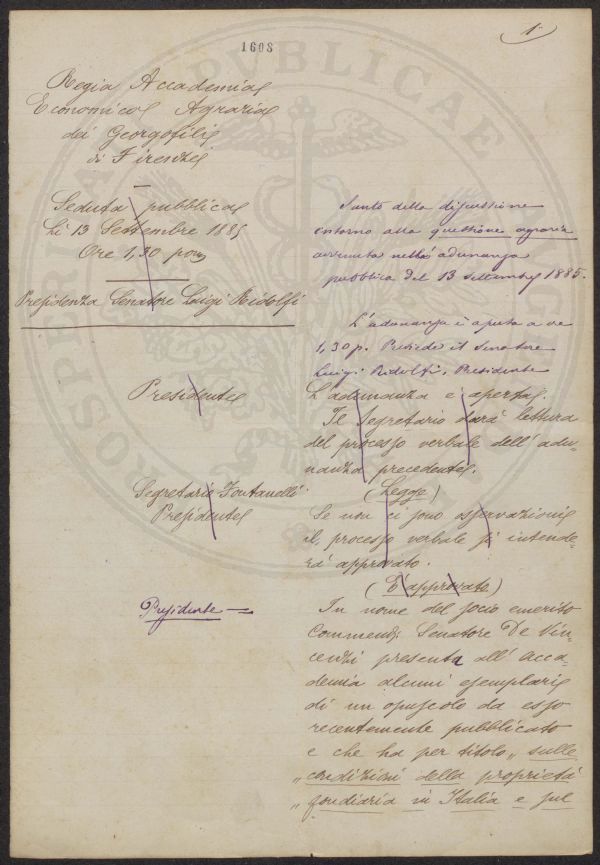 1608
1
Regia Accademia
Economico Agraria
dei Georgofili
di Firenze
Seduta pubblica
Li 13 Settembre 1885
Ore 1,30 pom
Presidenza Senatore Luigi Ridolfi
Sunto della discussione
intorno alla questione agraria
avvenuta nella adunanza
pubblica del 13 settembre 1885.
L'adunanza è aperta a ore
1,30 p. Presiede il Senatore
Luigi Ridolfi, Presidente
Presidente
L'adunanza è aperta.
Il Segretario darà lettura
del processo verbale dell'adu-
nanza precedente.
Segretario Fontanelli
(Legge)
Presidente
Se non ci sono osservazioni
il processo verbale si intende-
rà approvato.
(È approvato)
Presidente
In nome del socio emerito
Commend. Senatore De Vin-
cenzi presenta all'Acca-
demia alcuni esemplari
di un opuscolo da esso
recentemente pubblicato
e che ha per titolo „ sulle
„ condizioni della proprietà
„ fondiaria in Italia e sul
PUBLICAE
PROSPERITATI